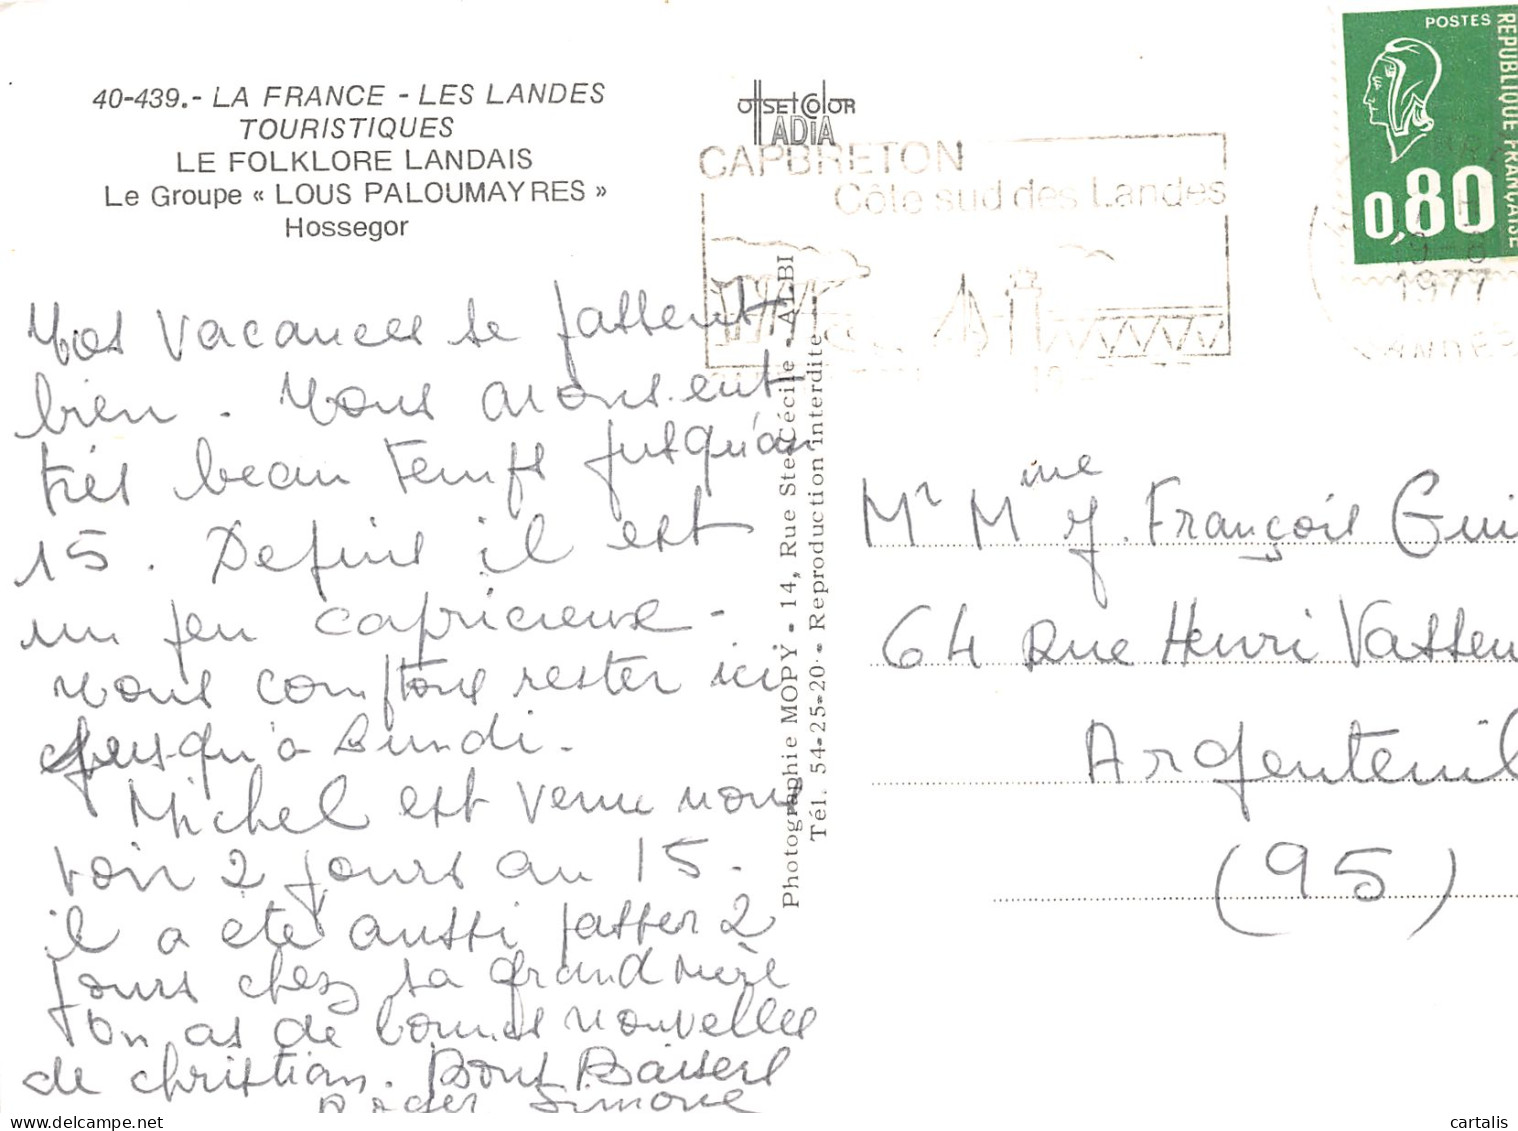 40-439.- LA FRANCE - LES LANDES
TOURISTIQUES
LE FOLKLORE LANDAIS
Le Groupe « LOUS PALOUMAYRES »
Hossegor
Nos vacances se passent
bien. Nous avons eut
très beau temps jusqu'au
15. Depuis il est
un peu capricieux -
nous comptons rester ici
jusqu'à Lundi.
Michel est venu nous
voir 2 jours au 15.
il a été aussi passer 2
jours chez sa grand mère
on as de bonnes nouvelles
de christian. Bons Baisers
Roger Simone
OFFSET COLOR
IADIA
CAPBRETON
Côte sud des Landes
Photographie MOPŸ - 14, Rue Ste-Cécile - ALBI
Tél. 54-25-20 - Reproduction interdite
POSTES
REPUBLIQUE FRANÇAISE
0,80
19-8
1977
LANDES
Mr Mme J. François Gui
64 Rue Henri Vasseu
Argenteuil
(95)
delcampe.net
cartalis